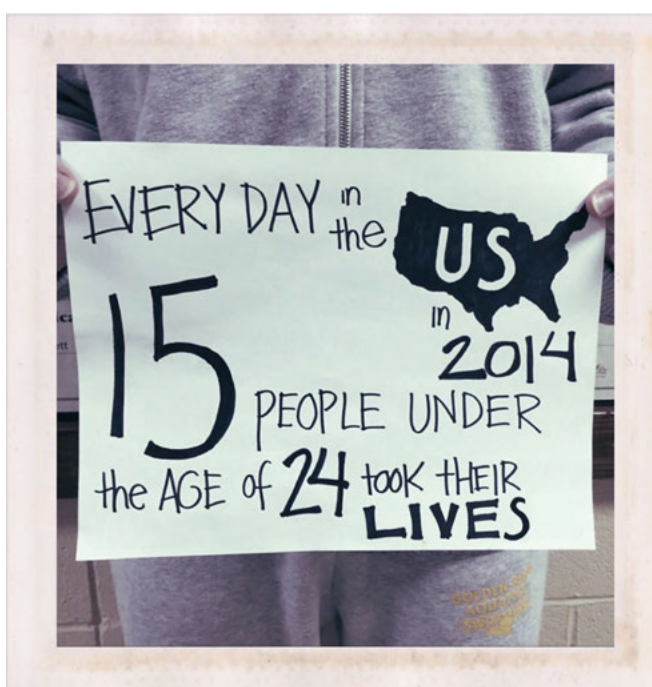 EVERY DAY in the US
in 2014
15 PEOPLE UNDER
the AGE of 24 took THEIR
LIVES